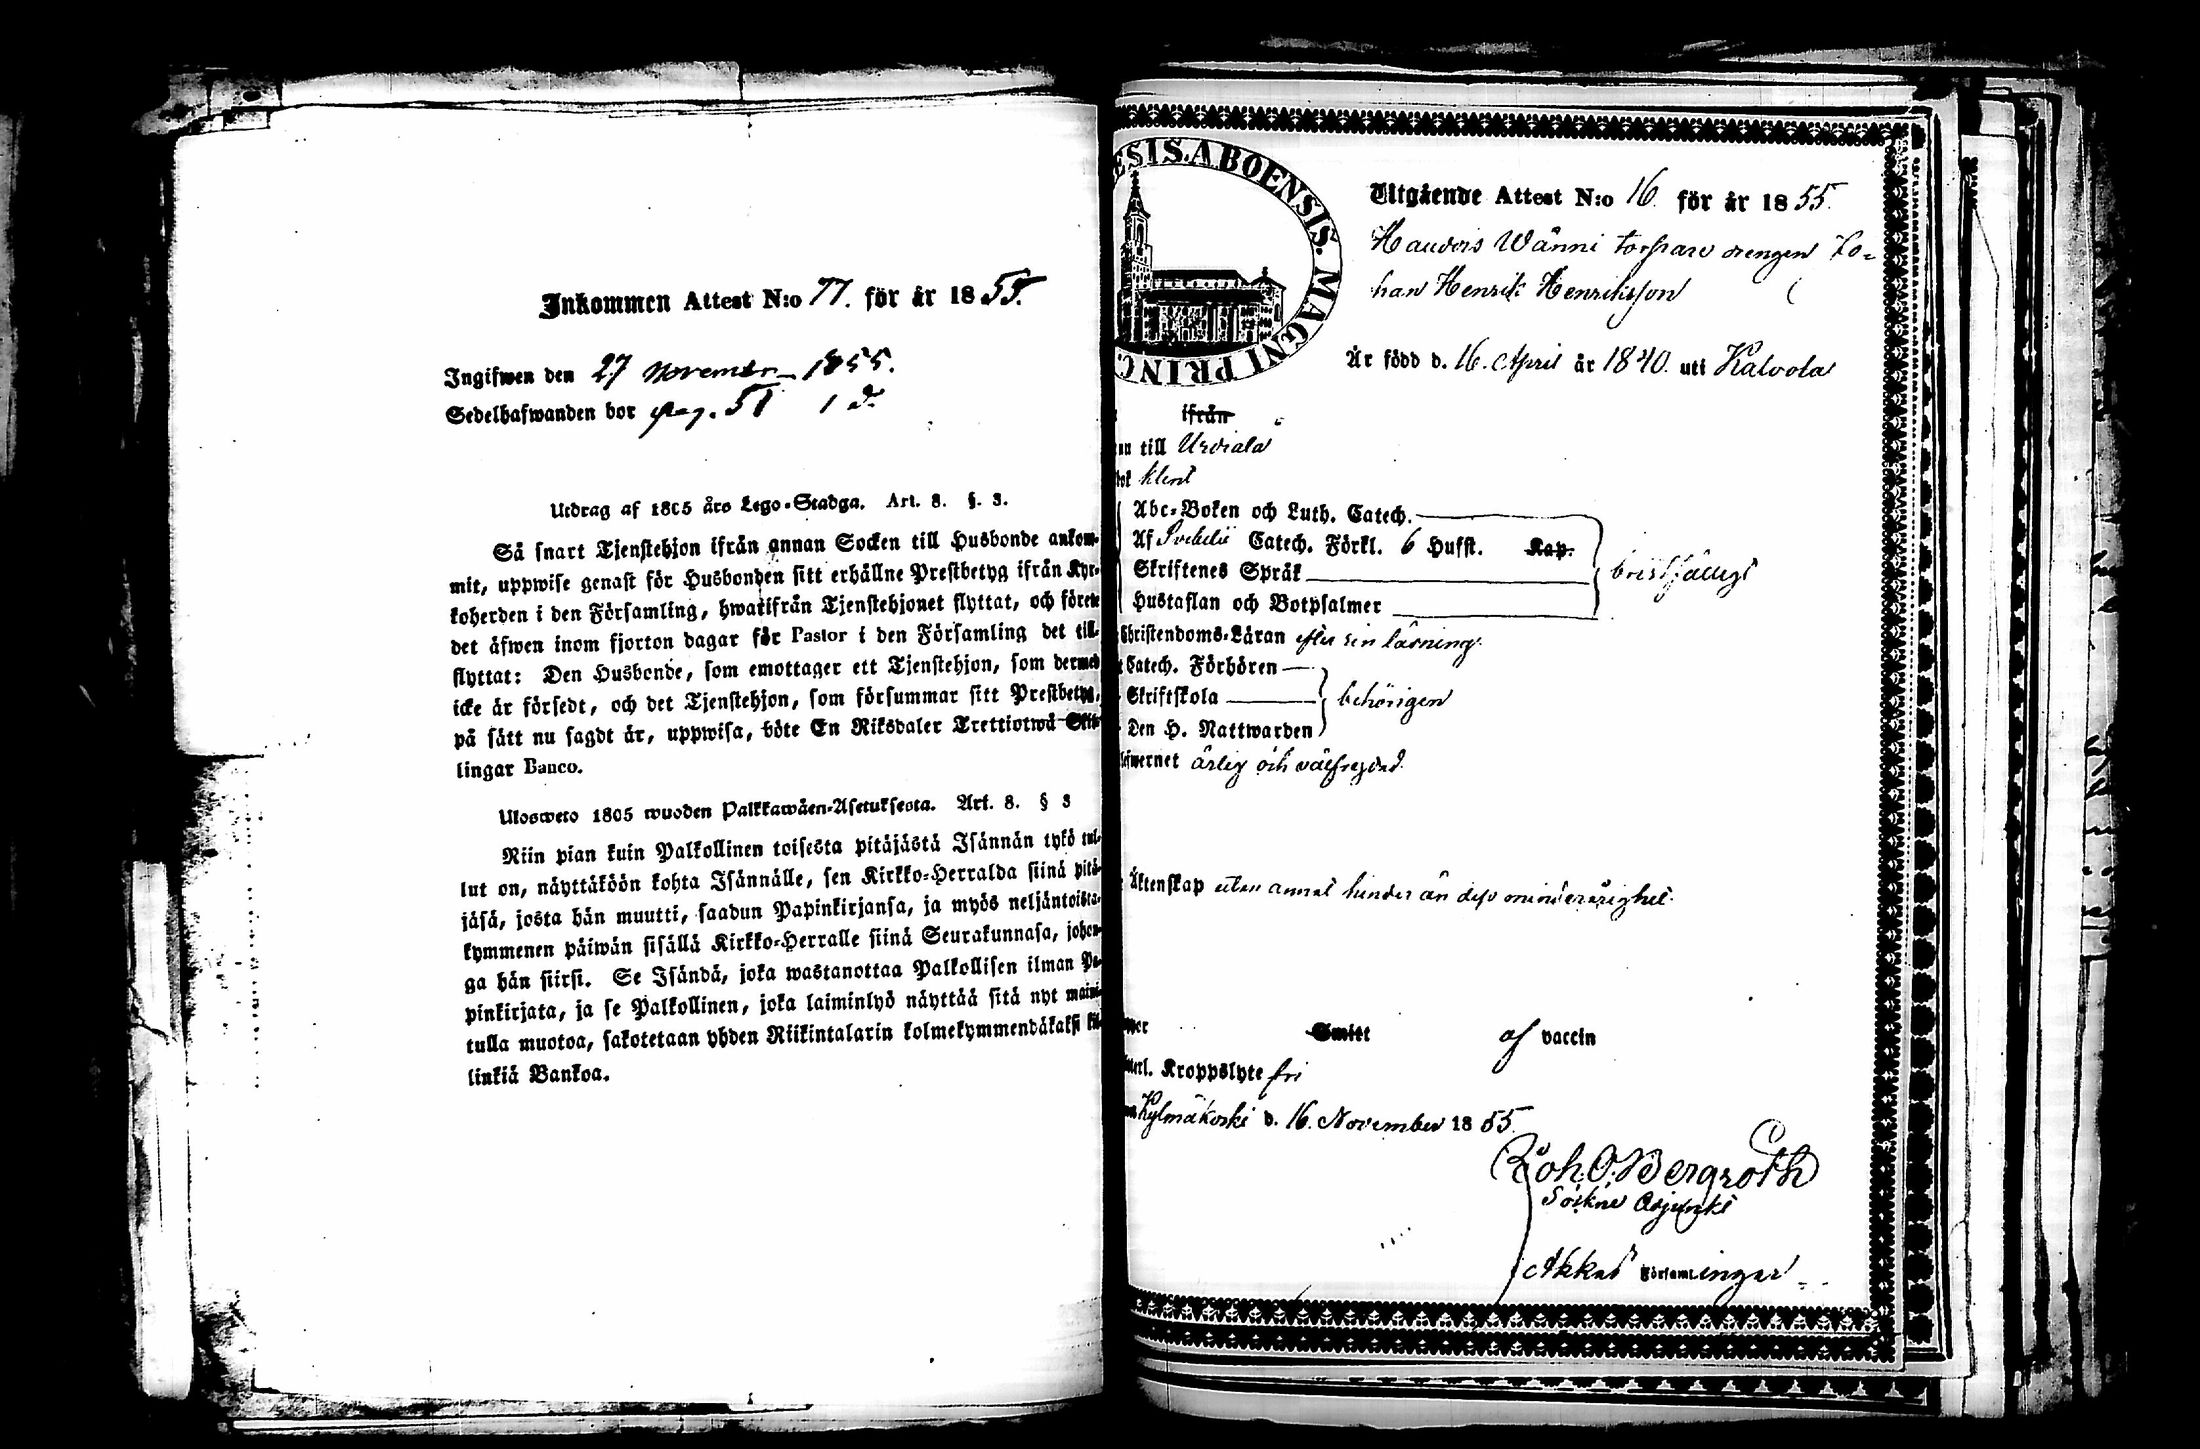 Inkommen Attest N:o 77. för år 1855.
Ingifwen den 27 November 1855.
Sedelhafwanden bor pag. 51 1 d.
Utdrag af 1805 års Lego-Stadga. Art. 8. §. 3.
Så snart Tjenstehjon ifrån annan Socken till Husbonde ankom-
mit, uppwise genast för Husbonden sitt erhållne Prestbetyg ifrån Kyr-
koherden i den Församling, hwarifrån Tjenstehjonet flyttat, och förete
det äfwen inom fjorton dagar för Pastor i den Församling det till-
flyttat: Den Husbonde, som emottager ett Tjenstehjon, som dermed
icke är försedt, och det Tjenstehjon, som försummar sitt Prestbetyg,
på sätt nu sagdt är, uppwisa, böte En Riksdaler Trettiotwå Skil-
lingar Banco.
Ulosweto 1805 wuoden Palkkawäen-Asetuksesta. Art. 8. § 3
Niin pian kuin Palkollinen toisesta pitäjästä Isännän tykö tul-
lut on, näyttäköön kohta Isännälle, sen Kirkko-Herralda siinä pitä-
jäsä, josta hän muutti, saadun Papinkirjansa, ja myös neljäntoista-
kymmenen päiwän sisällä Kirkko-Herralle siinä Seurakunnasa, johon-
ga hän siirsi. Se Isändä, joka wastanottaa Palkollisen ilman Pa-
pinkirjata, ja se Palkollinen, joka laiminlyö näyttää sitä nyt maini-
tulla muotoa, sakotetaan yhden Riikintalarin kolmekymmendäkaksi kil-
linkiä Bankoa.
ESIS. ABOENSIS. MAGNI PRINC.
Utgående Attest N:o 16. för år 1855.
Wänni torpare drengen Jo-
han Henrik Henriksson
Är född d. 16. April år 1840. uti Kalvola
ifrån
till Urdiala
klent
Abc-Boken och Luth. Catech.
Af Svebelii Catech. Förkl. 6 Hufst. Kap.
Skriftenes Språk
bristfälligt
Hustaflan och Botpsalmer
Christendoms-Läran efter sin läsning.
Catech. Förhören
Skriftskola
behörigen
Den H. Nattwarden
lefwernet ärlig och välfrejdad.
Äktenskap utan annat hinder än dess minderårighet.
Smitt af vaccin
Kroppslyte fri
Kylmäkoski d. 16. November 1855.
Joh. O. Bergroth
Sockne Adjunkt
Akkas Församlingar